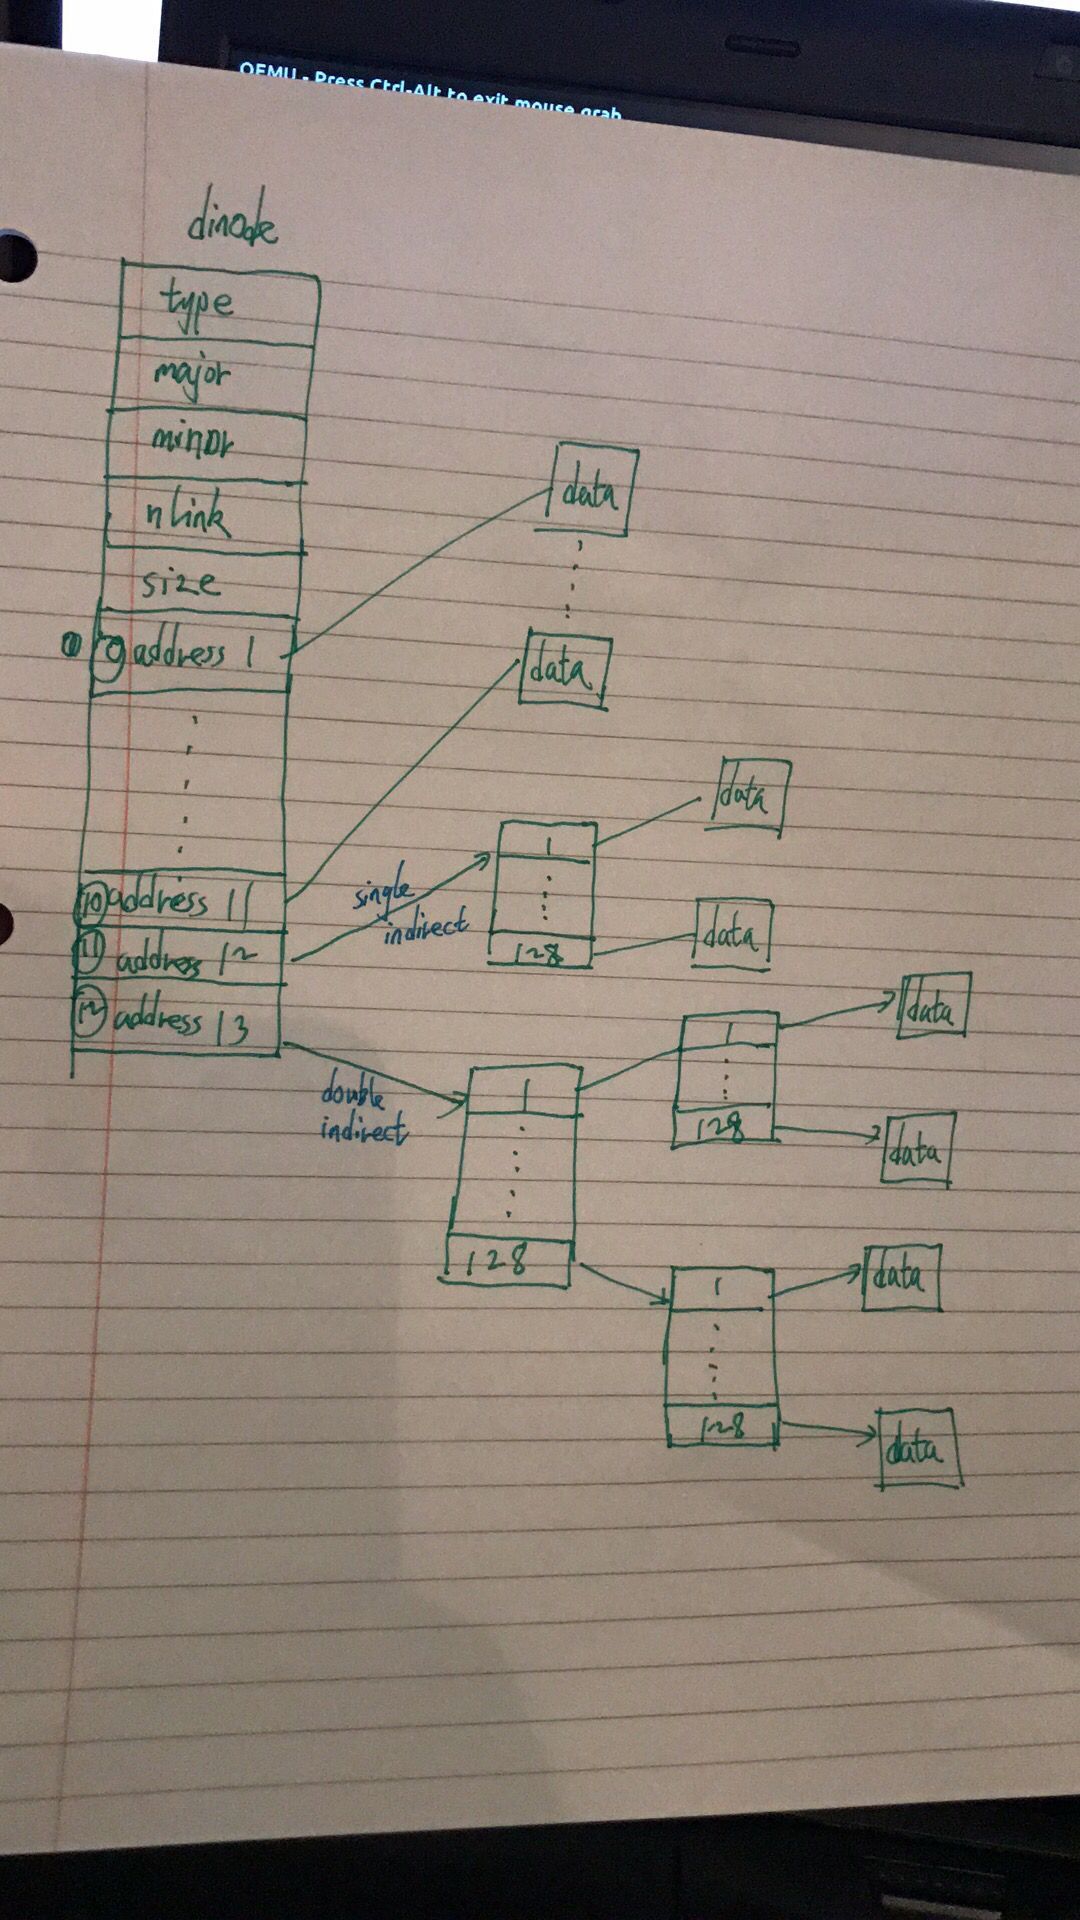 QEMU - Press Ctrl-Alt to exit mouse grab
dinode
type
major
minor
nlink
size
0 address 1
10 address 11
11 address 12
12 address 13
data
data
single
indirect
1
128
data
data
double
indirect
1
128
1
128
data
data
1
128
data
data